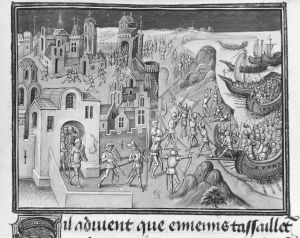 Sil aduient que ennemis tassaillet